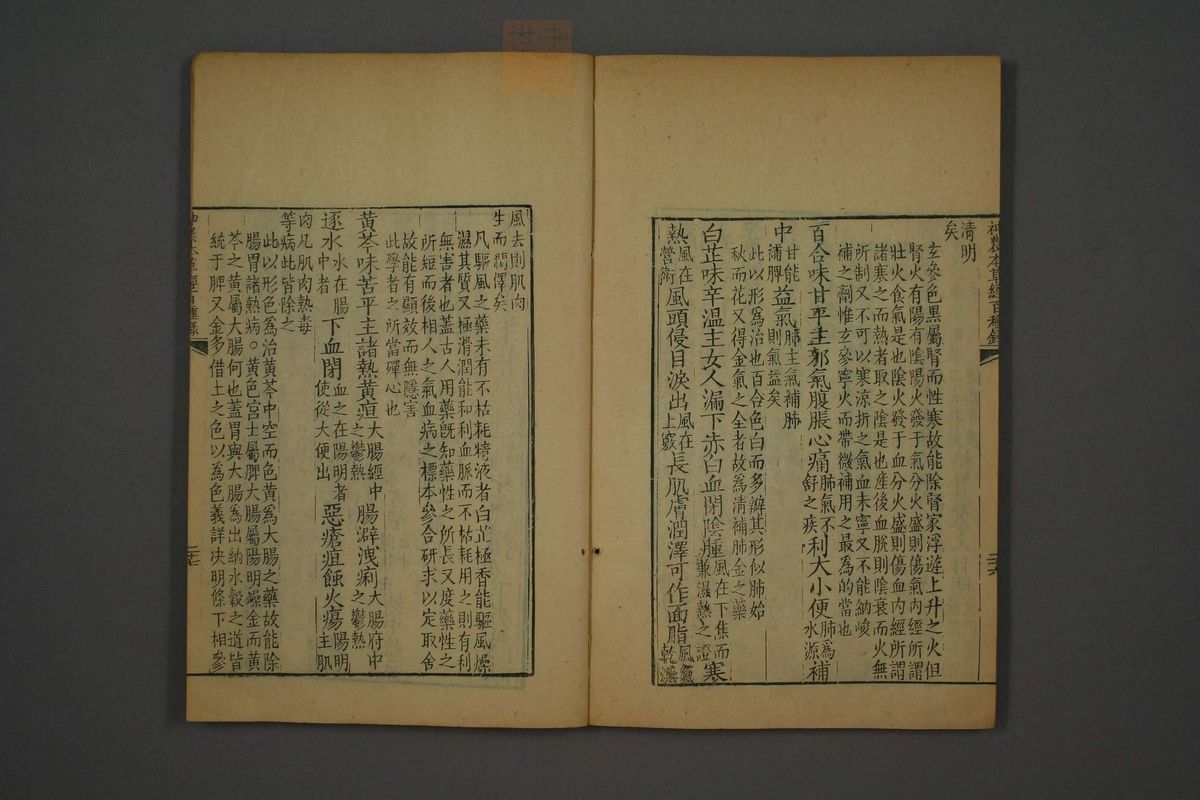 神農本草經百種錄
清明
矣
玄參色黑屬腎而性寒故能除腎家浮遊上升之火但
腎火有陽有陰陽火發于氣分火盛則傷氣內經所謂
壯火食氣是也陰火發于血分火盛則傷血內經所謂
諸寒之而熱者取之陰是也產後血脫則陰衰而火無
所制又不可以寒涼折之氣血未寧又不能納峻
補之劑惟玄參寧火而帶微補用之最為的當也
百合味甘平主邪氣腹脹心痛肺氣不舒之疾利大小便肺為水源補
中甘能補脾益氣肺主氣補肺則氣益矣
此以形為治也百合色白而多瓣其形似肺始
秋而花又得金氣之全者故為清補肺金之藥
白芷味辛溫主女人漏下赤白血閉陰腫風在下焦而兼濕熱之證寒
熱風在營衛風頭侵目淚出風在上竅長肌膚潤澤可作面脂風氣乾濕
二十六
風去則肌肉
生而潤澤矣
凡驅風之藥未有不枯耗精液者白芷極香能驅風燥
濕其質又極滑潤能和利血脈而不枯耗用之則有利
無害者也蓋古人用藥既知藥性之所長又度藥性之
所短而後相人之氣血病之標本參合研求以定取舍
故能有顯效而無隱害
此學者之所當殫心也
黃芩味苦平主諸熱黃疸大腸經中之鬱熱腸澼洩痢大腸府中之鬱熱
逐水水在腸中者下血閉血之在陽明者使從大便出惡瘡疽蝕火瘍陽明主肌
肉凡肌肉熱毒
等病此皆除之
此以形色為治黃芩中空而色黃為大腸之藥故能除
腸胃諸熱病。黃色宮士屬脾大腸屬陽明燥金而黃
芩之黃屬大腸何也蓋胃與大腸為出納水穀之道皆
統于脾又金多借土之色以為色義詳決明條下相參
神農本草經百種錄
二十七